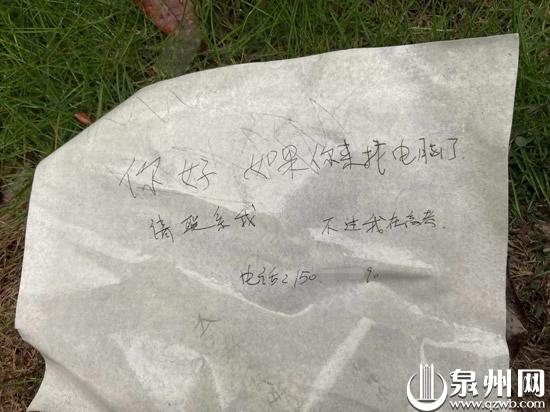 你好 如果你来找电脑了.
请联系我 不过我在高考.
电话:150 90
泉州网
www.qzwb.com